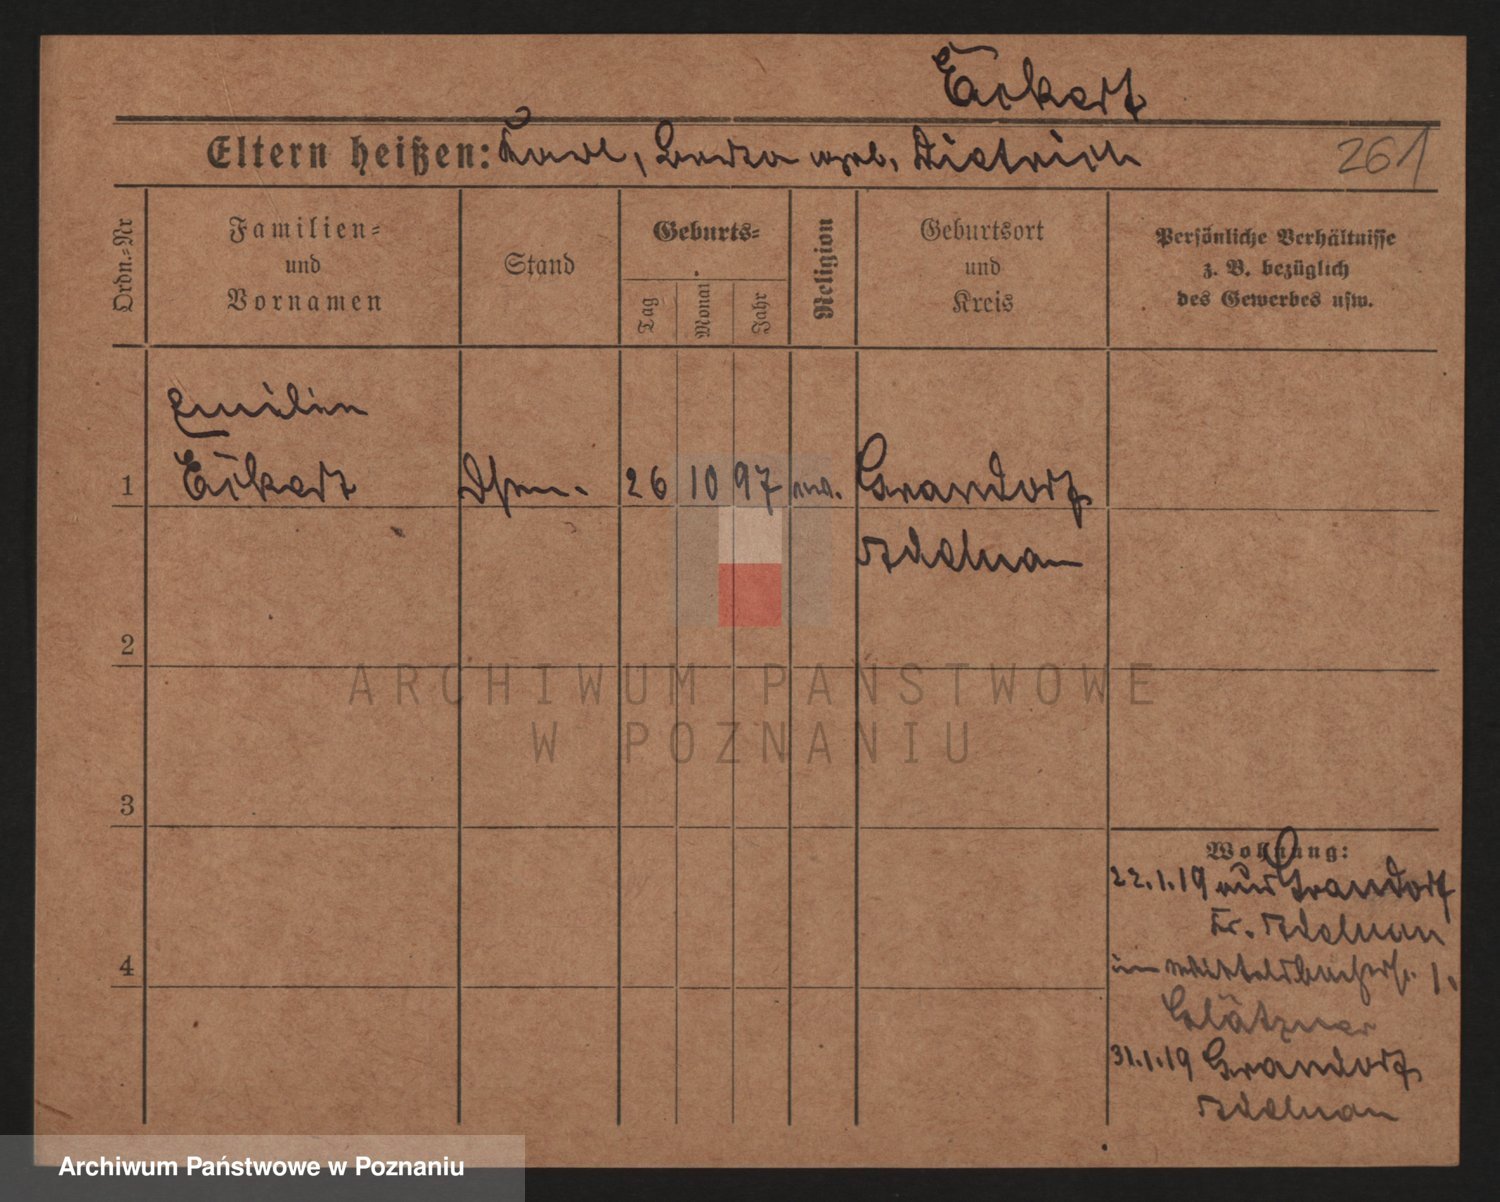 Eckert
Eltern heißen: Karl, Berta geb. Dietrich
261
Ordn.-Nr
Familien-
und
Vornamen
Stand
Geburts-
Tag
Monat
Jahr
Religion
Geburtsort
und
Kreis
Persönliche Verhältnisse
z. B. bezüglich
des Gewerbes usw.
Emilie
1 Eckert 26 10 97 Grandorf
2
3
4
Wohnung:
22.1.19 aus Grandorf
Kr.
1.
31.1.19 Grandorf
ARCHIWUM PAŃSTWOWE
W POZNANIU
Archiwum Państwowe w Poznaniu